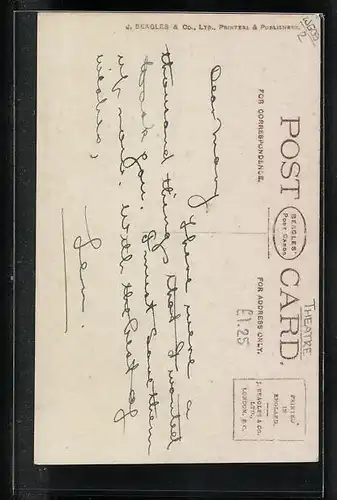 J. BEAGLES & CO., LTD., PRINTERS & PUBLISHERS.
POST CARD.
BEAGLES'
POST CARDS
FOR CORRESPONDENCE.
FOR ADDRESS ONLY.
THEATRE
£1.25
PRINTED
IN
ENGLAND.
J. BEAGLES & CO.
LTD.,
LONDON, E.C.
Dear Mary
There were a
thousand things that I wanted
to ask you. I must save them
till next. With the best of
wishes,